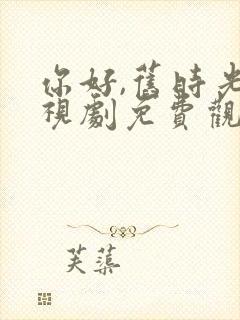 你好,舊時光
視劇免費觀
芙蕖